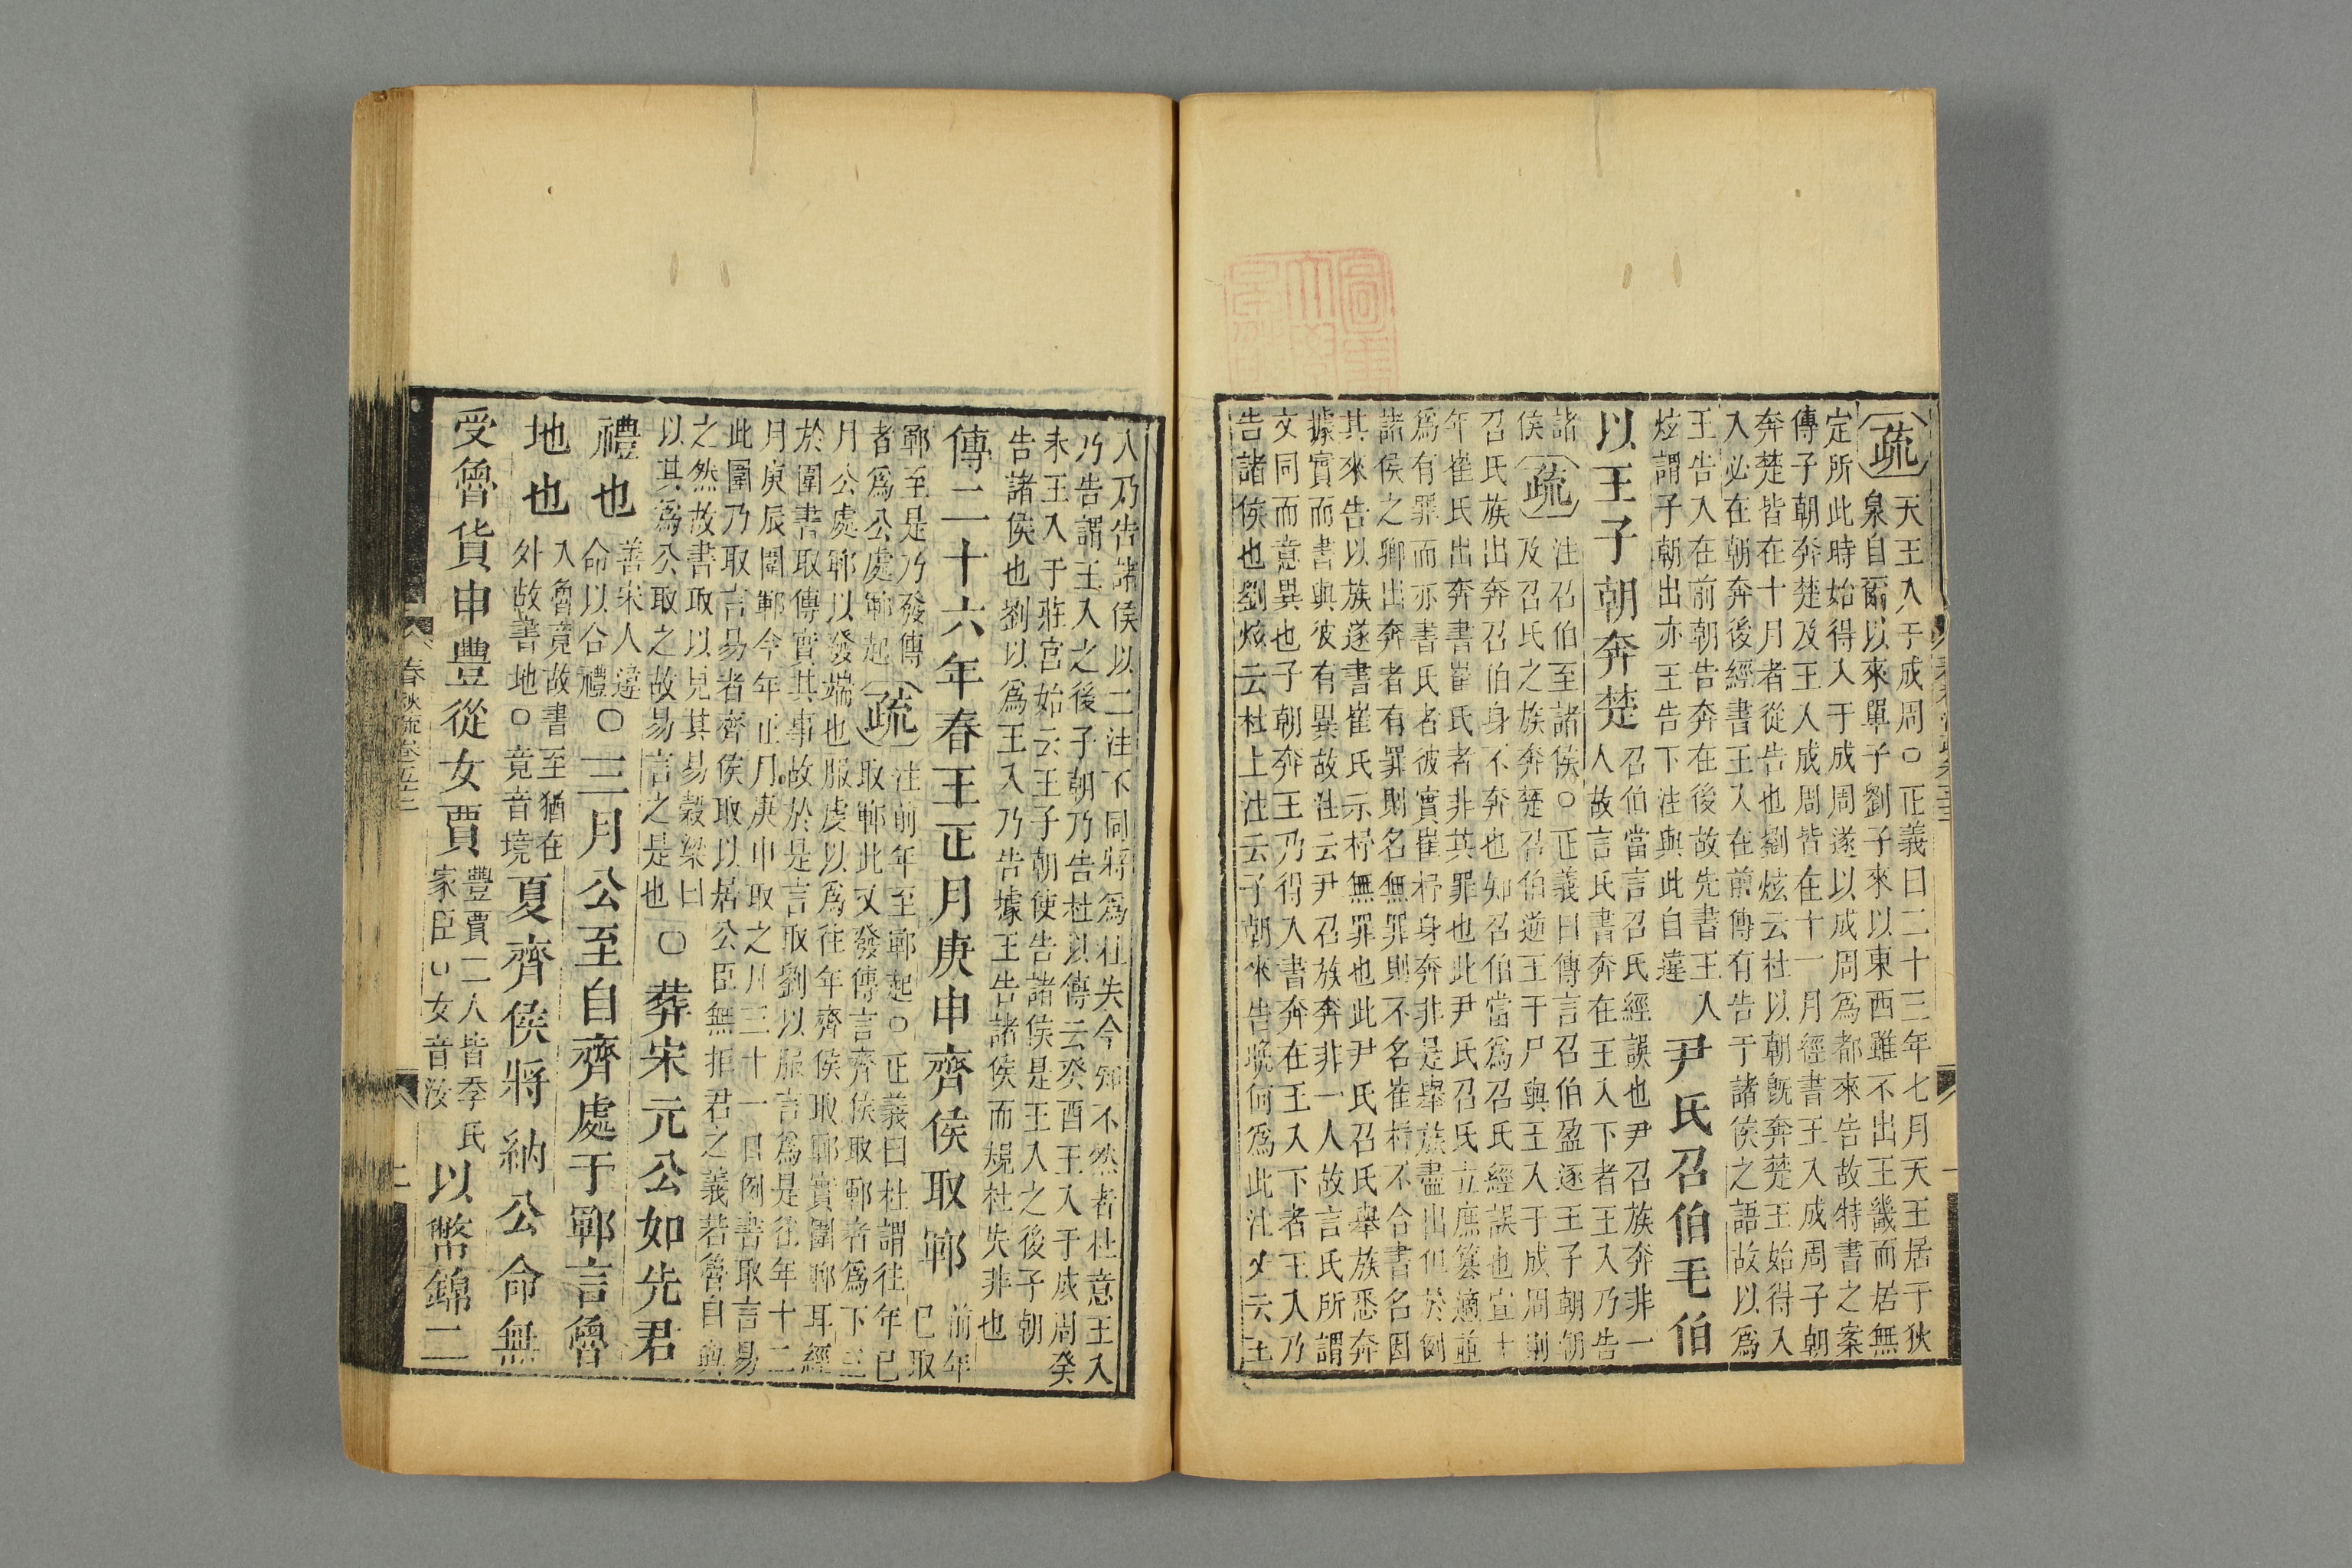 疏 天王入于成周○正義曰二十三年七月天王居于狄
泉自爾以來單子劉子來以東西雖不出王畿而居無
定所此時始得入于成周遂以成周爲都來告故特書之案
傳子朝奔楚及王人成周皆在十一月經書王入成周子朝
奔楚皆在十月者從告也劉炫云杜以朝旣奔楚王始得入
入必在朝奔後經書王入在前傳有告于諸侯之語故以爲
王告入在前朝告奔在後故先書王入
炫謂子朝出亦王告下注與此自違
尹氏召伯毛伯
以王子朝奔楚
召伯當言召氏經誤也尹召族奔非一
人故言氏書奔在王入下者王入乃告
諸侯
疏 注召伯至諸侯○正義曰傳言召伯盈逐王子朝朝
及召氏之族奔楚召伯逆王于尸與王入于成周則
召氏族出奔召伯身不奔也如召伯當爲召氏經誤也宣十
年崔氏出奔書崔氏者非其罪也此尹氏召氏立庶篡適並
爲有罪而亦書氏者彼實崔杼身奔非是舉族盡出但於例
諸侯之卿出奔者有罪則名無罪則不名崔杼不合書名因
其來告以族遂書崔氏示杼無罪也此尹氏召氏舉族悉奔
據實而書與彼有異故注云尹召族奔非一人故言氏所謂
文同而意異也子朝奔王乃得入書奔在王入下者王入乃
告諸侯也劉炫云杜上注云子朝來告晚何爲此注又云王
入乃告諸侯以二注不同將爲杜失今知不然者杜意王入
乃告謂王入之後子朝乃告杜以傳云癸酉王入于成周癸
未王入于莊宮始云王子朝使告諸侯是王入之後子朝
告諸侯也劉以爲王入乃告據王告諸侯而規杜失非也
傳二十六年春王正月庚申齊侯取鄆
前年
已取
鄆至是乃發傳
者爲公處鄆起
疏 注前年至鄆起○正義曰杜謂往年已
取鄆此又發傳言齊侯取鄆者爲下三
月公處鄆以發端也服虔以爲往年齊侯取鄆實圍鄆耳經
於圍書取傳實其事故於是言取劉以服言爲是往年十二
月庚辰圍鄆今年正月庚申取之月三十一日例書取言易
此圍乃取言易者齊侯取以居公臣無拒君之義若魯自與
之然故書取以見其易穀梁曰
以其爲公取之故易言之是也
○葬宋元公如先君
禮也
善宋人違
命以合禮
○三月公至自齊處于鄆言魯
地也
入魯竟故書至猶在
外故書地○竟音境
夏齊侯將納公命無
受魯貨申豐從女賈
豐賈二人皆季氏
家臣○女音汝
以幣錦二
春秋疏卷五十二
二